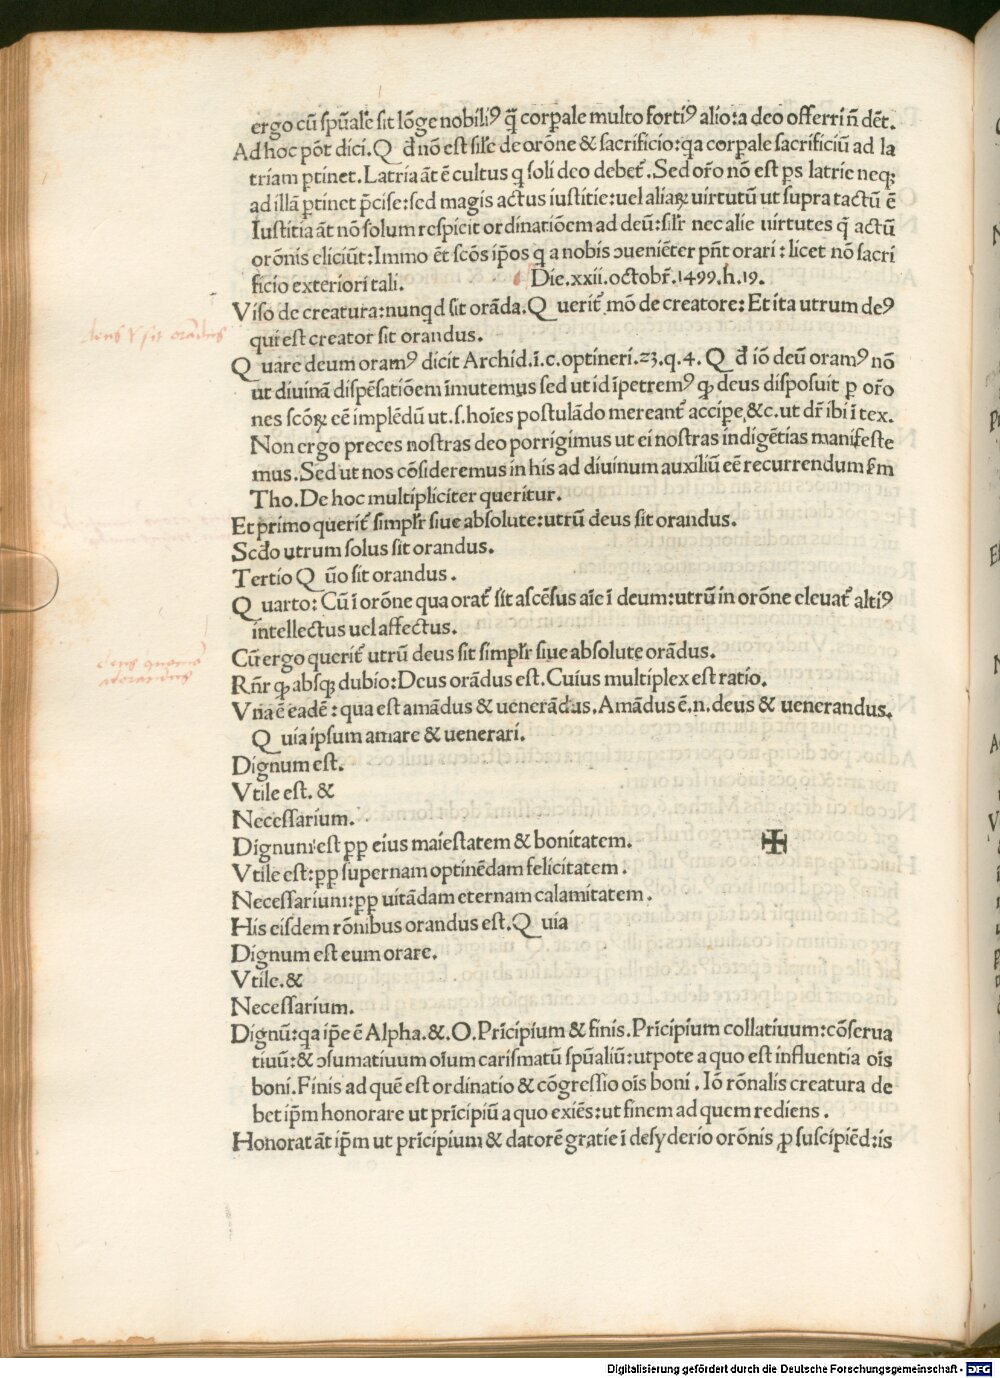 ergo cū ſpūalē ſit lōge nobiliꝰ q̄ꝫ corꝑale multo fortiꝰ alio: a deo offerri n̄ dēt.
Ad hoc pōt dici. Q đ nō eſt ſil̄e de orōne & ſacrificio: qa corꝑale ſacrificiū ad la
triam ꝑtinet. Latria āt ē cultus q ſoli deo debet᷑. Sed or̄o nō eſt ps latrie neqꝫ
ad illā ꝑtinet p̄ciſe: ſed magis actus iuſtitie: uel aliaꝝ uirtutū ut ſupra tactū ē
Iuſtitia āt nō ſolum reſpicit ordinatiōem ad deū: ſil̄r nec alie uirtutes q̄ actū
orōnis eliciūt: Immo ēt ſcōs ip̄os q a nobis ꝯueniēter pn̄t orari: licet nō ſacri
ficio exteriori tali.
Die. xxii. octobr̄. 1499. h. 19.
Viſo de creatura: nunqd ſit orāda. Q uerit᷑ mō de creatore: Et ita utrum deꝰ
qui eſt creator ſit orandus.
deus ſit orādus
Q uare deum oramꝰ dicit Archid. ī. c. optineri. 23. q. 4. Q đ iō deū oramꝰ nō
ut diuinā diſpēſatiōem īmutemus ſed ut id īpetremꝰ qꝫ deus diſpoſuit ꝑ or̄o
nes ſcōꝝ eē implēdū ut. ſ. hoīes poſtulādo mereant᷑ accipe, &c. ut dr̄ ibi ī tex.
Non ergo preces noſtras deo porrigimus ut ei noſtras indigētias manifeſte
mus. Sed ut nos cōſideremus in his ad diuinum auxiliū eē recurrendum ẜm
Tho. De hoc multipliciter queritur.
Et primo querit᷑ ſimpl̄r ſiue abſolute: utrū deus ſit orandus.
Scđo utrum ſolus ſit orandus.
Tertio Q ūo ſit orandus.
Q uarto: Cū ī orōne qua orat᷑ ſit aſcēſus aīe ī deum: utrū in orōne eleuat᷑ altiꝰ
intellectus uel affectus.
Cū ergo querit᷑ utrū deus ſit ſimpl̄r ſiue abſolute orādus.
deus quomō
adorandus
Rn̄r qꝫ absqꝫ dubio: Deus orādus eſt. Cuius multiplex eſt ratio.
Vna ē eadē: qua eſt amādus & uenerādus. Amādus ē. n. deus & uenerandus.
Q uia ipſum amare & uenerari.
Dignum eſt.
Vtile eſt. &
Neceſſarium.
Dignum eſt ꝑꝑ eius maieſtatem & bonitatem.
✠
Vtile eſt: ꝑꝑ ſupernam optinēdam felicitatem.
Neceſſarium: ꝑꝑ uitādam eternam calamitatem.
His eiſdem rōnibus orandus eſt. Q uia
Dignum eſt eum orare.
Vtile. &
Neceſſarium.
Dignū: qa ip̄e ē Alpha. &. O. Prīcipium & finis. Prīcipium collatiuum: cōſerua
tiuū: & ꝯſumatiuum oīum cariſmatū ſpūaliū: utpote a quo eſt influentia oīs
boni. Finis ad quē eſt ordinatio & cōgreſſio oīs boni. Iō rōnalis creatura de
bet ip̄m honorare ut prīcipiū a quo exiēs: ut finem ad quem rediens.
Honorat āt ip̄m ut prīcipium & datorē gratie ī deſyderio orōnis ꝓ ſuſcipiēdis
Digitalisierung gefördert durch die Deutsche Forschungsgemeinschaft - DFG